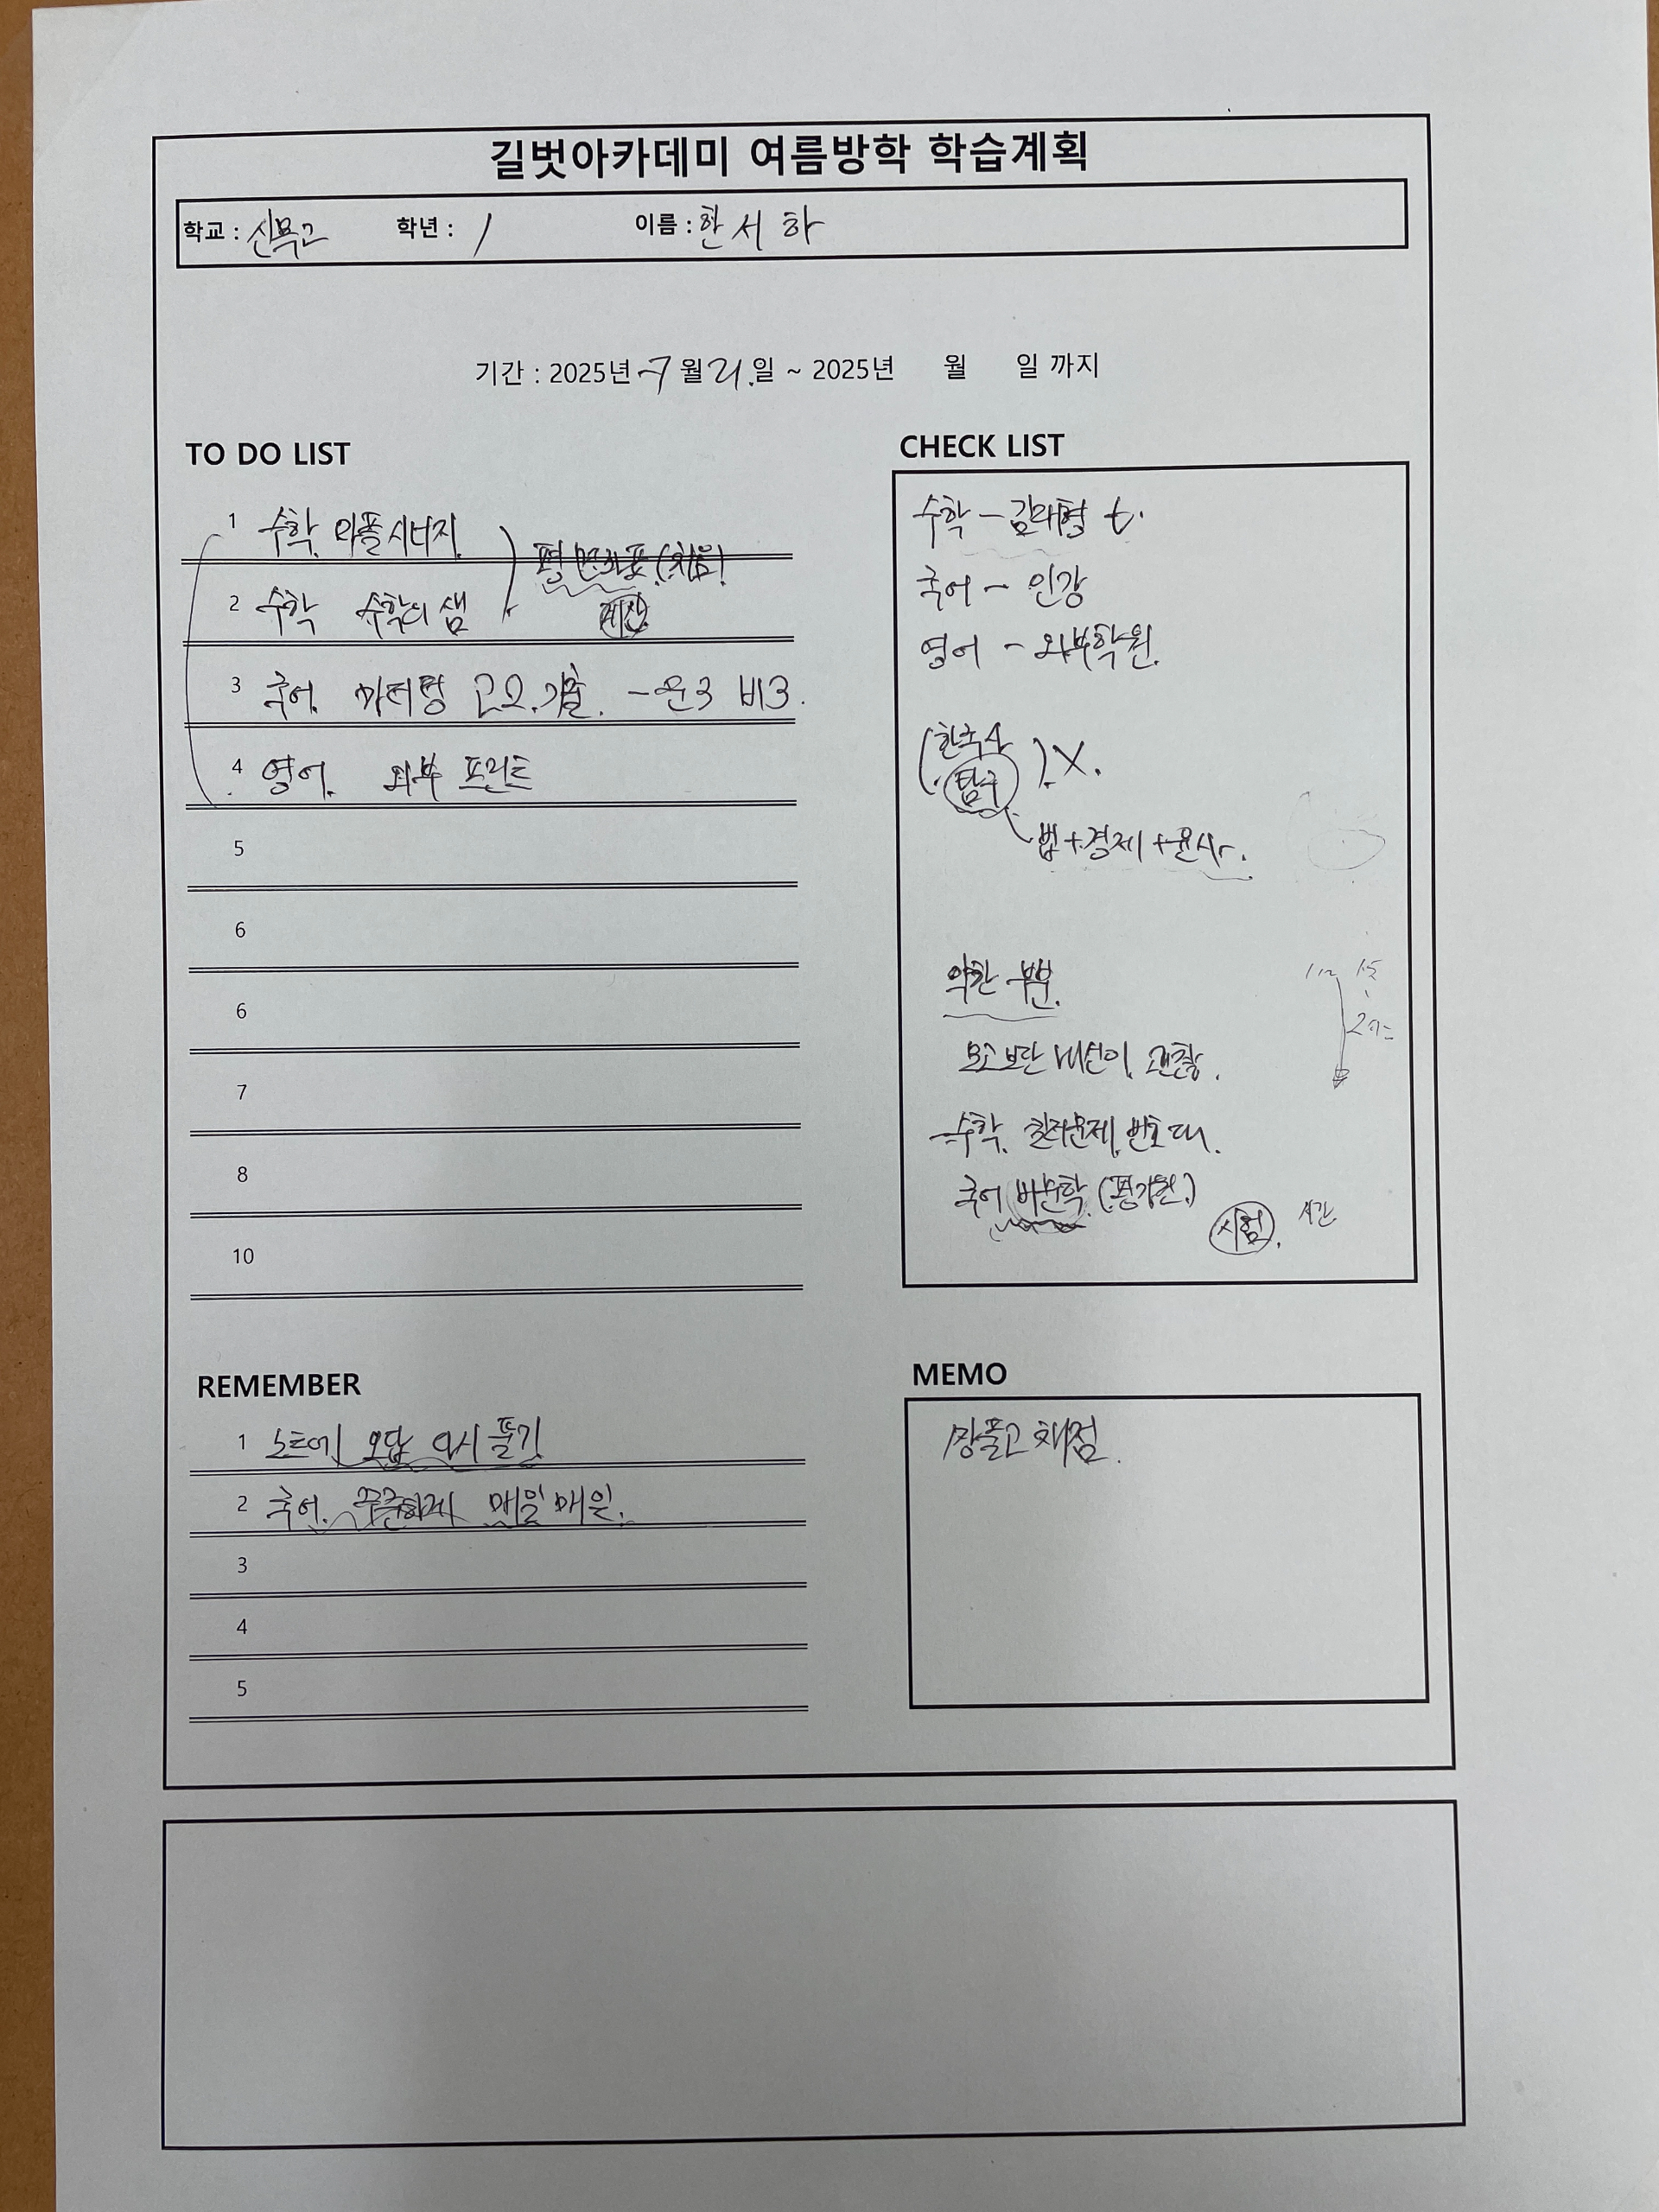 길벗아카데미 여름방학 학습계획
학교 : 신목고 학년 : 1 이름 : 한서하
기간 : 2025년 7월 21일 ~ 2025년 월 일 까지
TO DO LIST
1 수학 와플시너지
평면좌표 (처음)
2 수학 수학의 샘
계산
3 국어 마더텅 고2 기출 - 문3 비3
4 영어 외부 프린트
5
6
6
7
8
10
CHECK LIST
수학 - 김태형 t.
국어 - 인강
영어 - 외부학원.
(한국사
탐구) X.
법+경제+윤사.
약한 부분.
모고보단 내신이 괜찮.
수학. 킬러문제.
국어 비문학 (평가원)
시험. 시간
REMEMBER
1 노트에 오답 다시 풀기
2 국어. 꾸준하게 매일매일.
3
4
5
MEMO
풀고 채점.